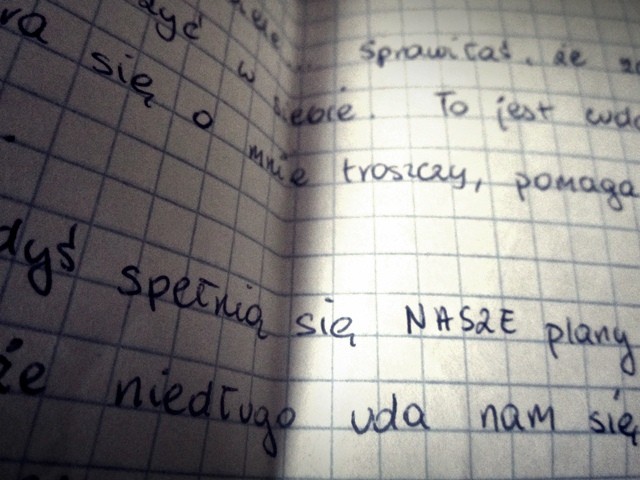 Sprawiłaś, że
się w siebie. To jest
o mnie troszczy, pomaga
spełnią się NASZE plany
że niedługo uda nam się